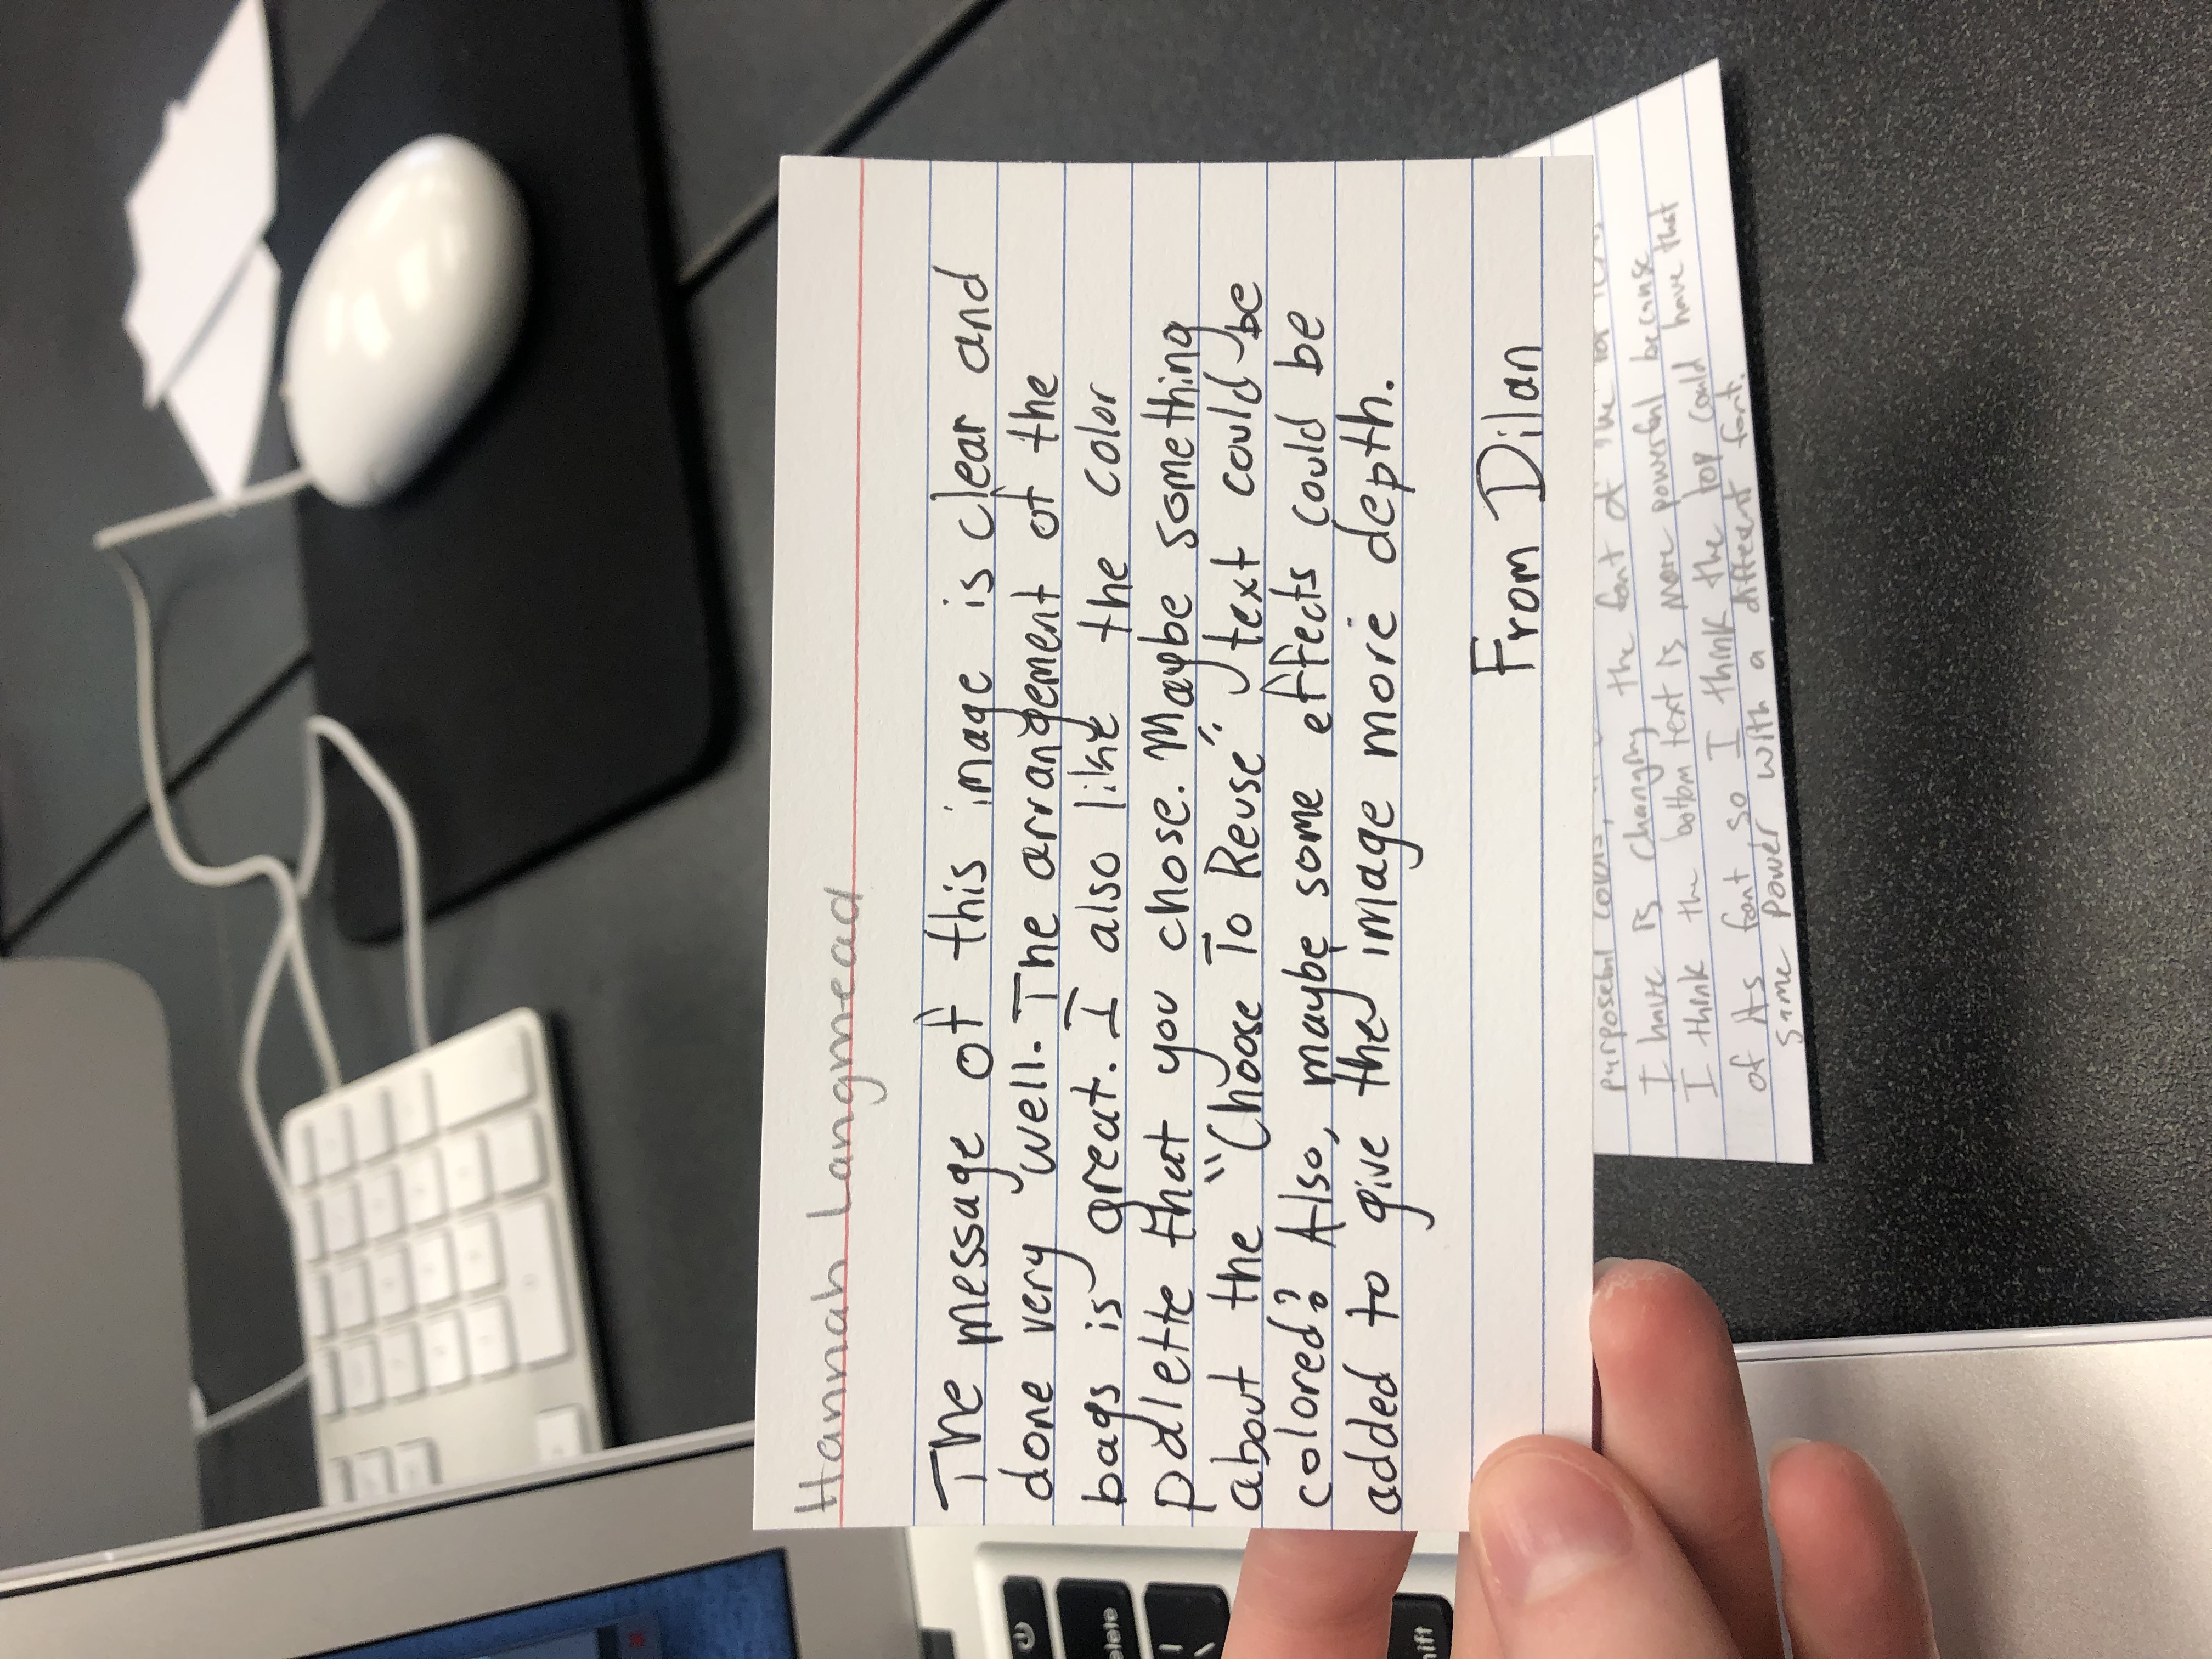 Hannah Langmead
The message of this image is clear and
done very well. The arrangement of the
bags is great. I also like the color
palette that you chose. Maybe something
about the "Choose To Reuse" text could be
colored? Also, maybe some effects could be
added to give the image more depth.
From Dilan
purposeful colors,
I have is changing the font of the
I think the bottom text is more powerful because
of its font, so I think the top could have that
same power with a different font.
elete
hift